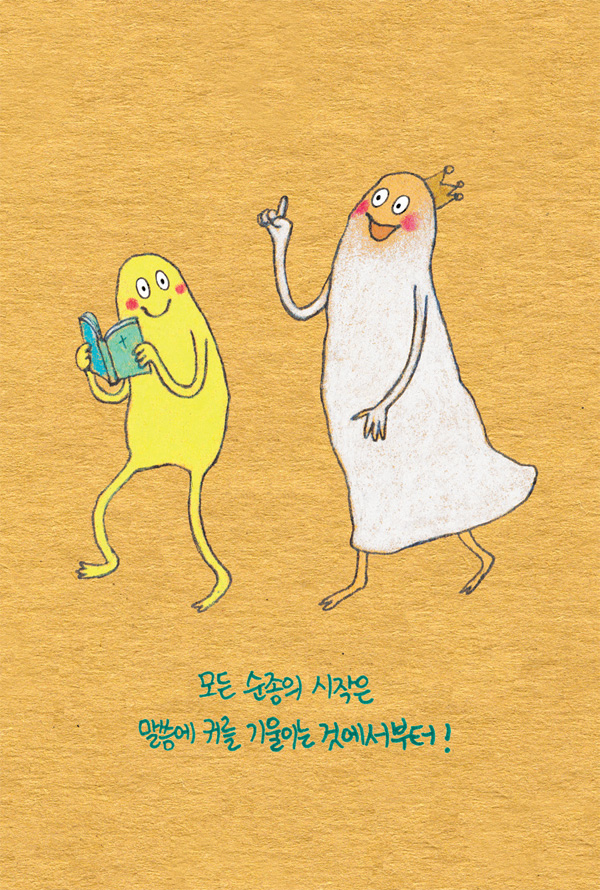 모든 순종의 시작은
말씀에 귀를 기울이는 것에서부터!